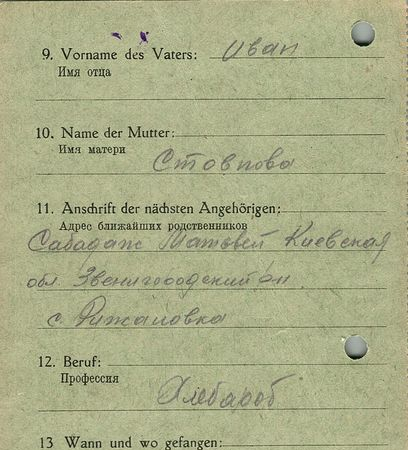 9. Vorname des Vaters: Иван
Имя отца
10. Name der Mutter:
Имя матери
Стовпова
11. Anschrift der nächsten Angehörigen:
Адрес ближайших родственников
Сабадаж Матовей Киевская
обл. Звенигородский
с Рижановка
12. Beruf:
Профессия
Хлебароб
13 Wann und wo gefangen: